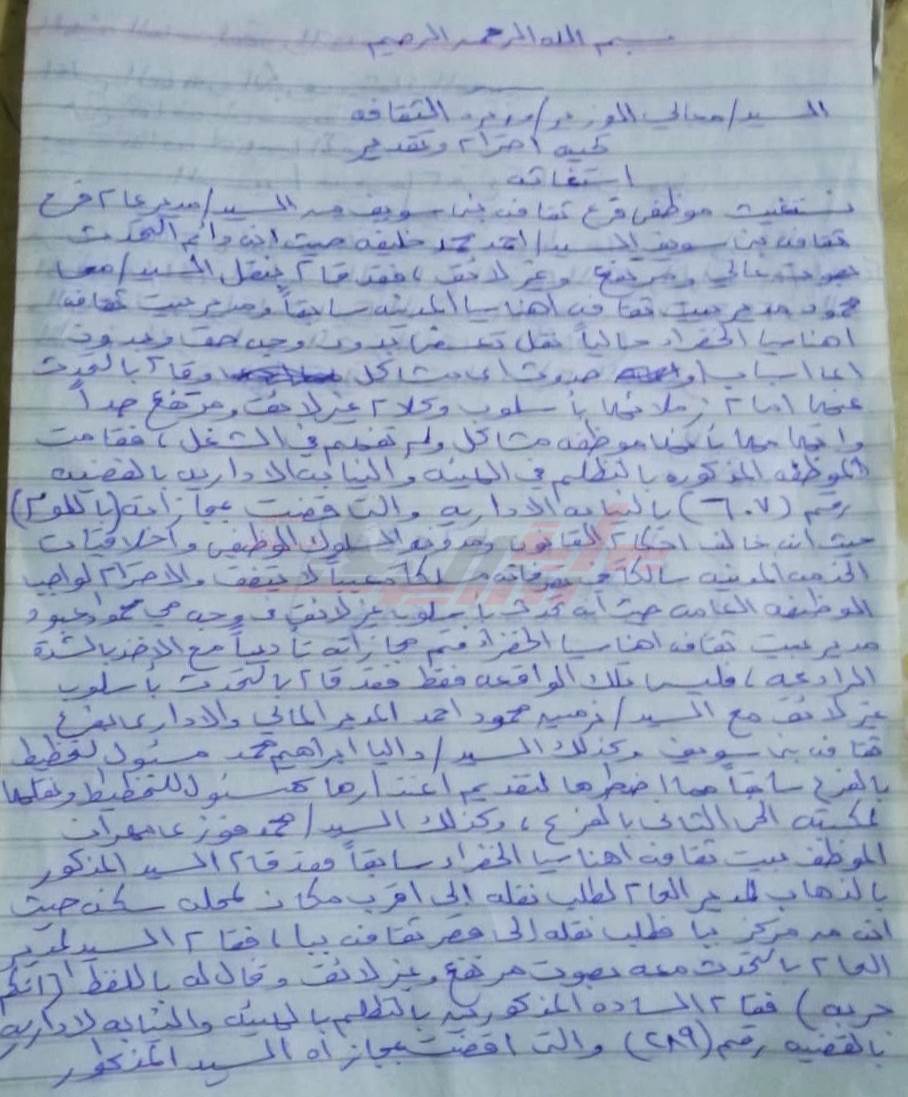 بسم الله الرحمن الرحيم
السيد/معالي الوزير/وزيره الثقافه
تحيه احترام وتقدير
استغاثه
نستغيث موظفى فرع ثقافه بنى سويف من السيد/مدير عام فرع
ثقافه بنى سويف السيد/احمد محمد خليفه حيث انه دائم التحدث
بصوت عالي ومرتفع وغير لائق، فقد قام بنقل السيد/مها
محمود مدير بيت ثقافه اهناسيا المدينه سابقاً ومدير بيت ثقافه
اهناسيا الخضراء حالياً نقل تعسفى بدون وجه حق وبدون
اعداء اسباب او حدوث اى مشاكل وقام بالتحدث
عنها امام زملائها بأسلوب وكلام غير لائق ومرتفع جداً
واتهامها بأنها موظفه مشاكل ولم تفهم في الشغل، فقامت
الموظفه المذكوره بالتظلم في الهيئه والنيابه الاداريه بالقضيه
رقم (٦٠٧) بالنيابه الاداريه والتى قضت بمجازاته (باللوم)
حيث انه خالف احكام القانون ومدونه السلوك الوظيفى واخلاقيات
الخدمه المدنيه سالكاً في تصرفاته مسلكاً معيباً لا يتفق والاحترام الواجب
الوظيفه العامه حيث انه تحدث باسلوب غير لائق فى وجه مى محمود احمد
مدير بيت ثقافه اهناسيا الخضراء فتم مجازاته تأديباً مع الاخذ بالشدة
الرادعه، فليس تلك الواقعه فقط فقد قام بالتحدث بأسلوب
غير لائق مع السيد/ محمود احمد المدير المالي والادارى بفرع
ثقافه بنى سويف وكذلك السيد/داليا ابراهيم محمد مسئول تخطيط
بالفرع سابقاً مما اضطرها لتقديم اعتذارها كمسئول للتخطيط ونقلها
لمكتبه الحى الثانى بالفرع، وكذلك السيد/محمد فوزى مهران
الموظف ببيت ثقافه اهناسيا الخضراء سابقاً فقد قام السيد المذكور
بالذهاب للمدير العام لطلب نقله الى اقرب مكان لمحل سكنه حيث
انه من مركز ببا فطلب نقله الى قصر ثقافه ببا، فقام السيد المدير
العام بالتحدث معه بصوت مرتفع وغير لائق وقال له باللفظ (اتكلم
) فقام الساده المذكورين بالتظلم بالهيئه والنيابه الاداريه
بالقضيه رقم (٢٨٩) والتى اقضت بمجازاه السيد المذكور